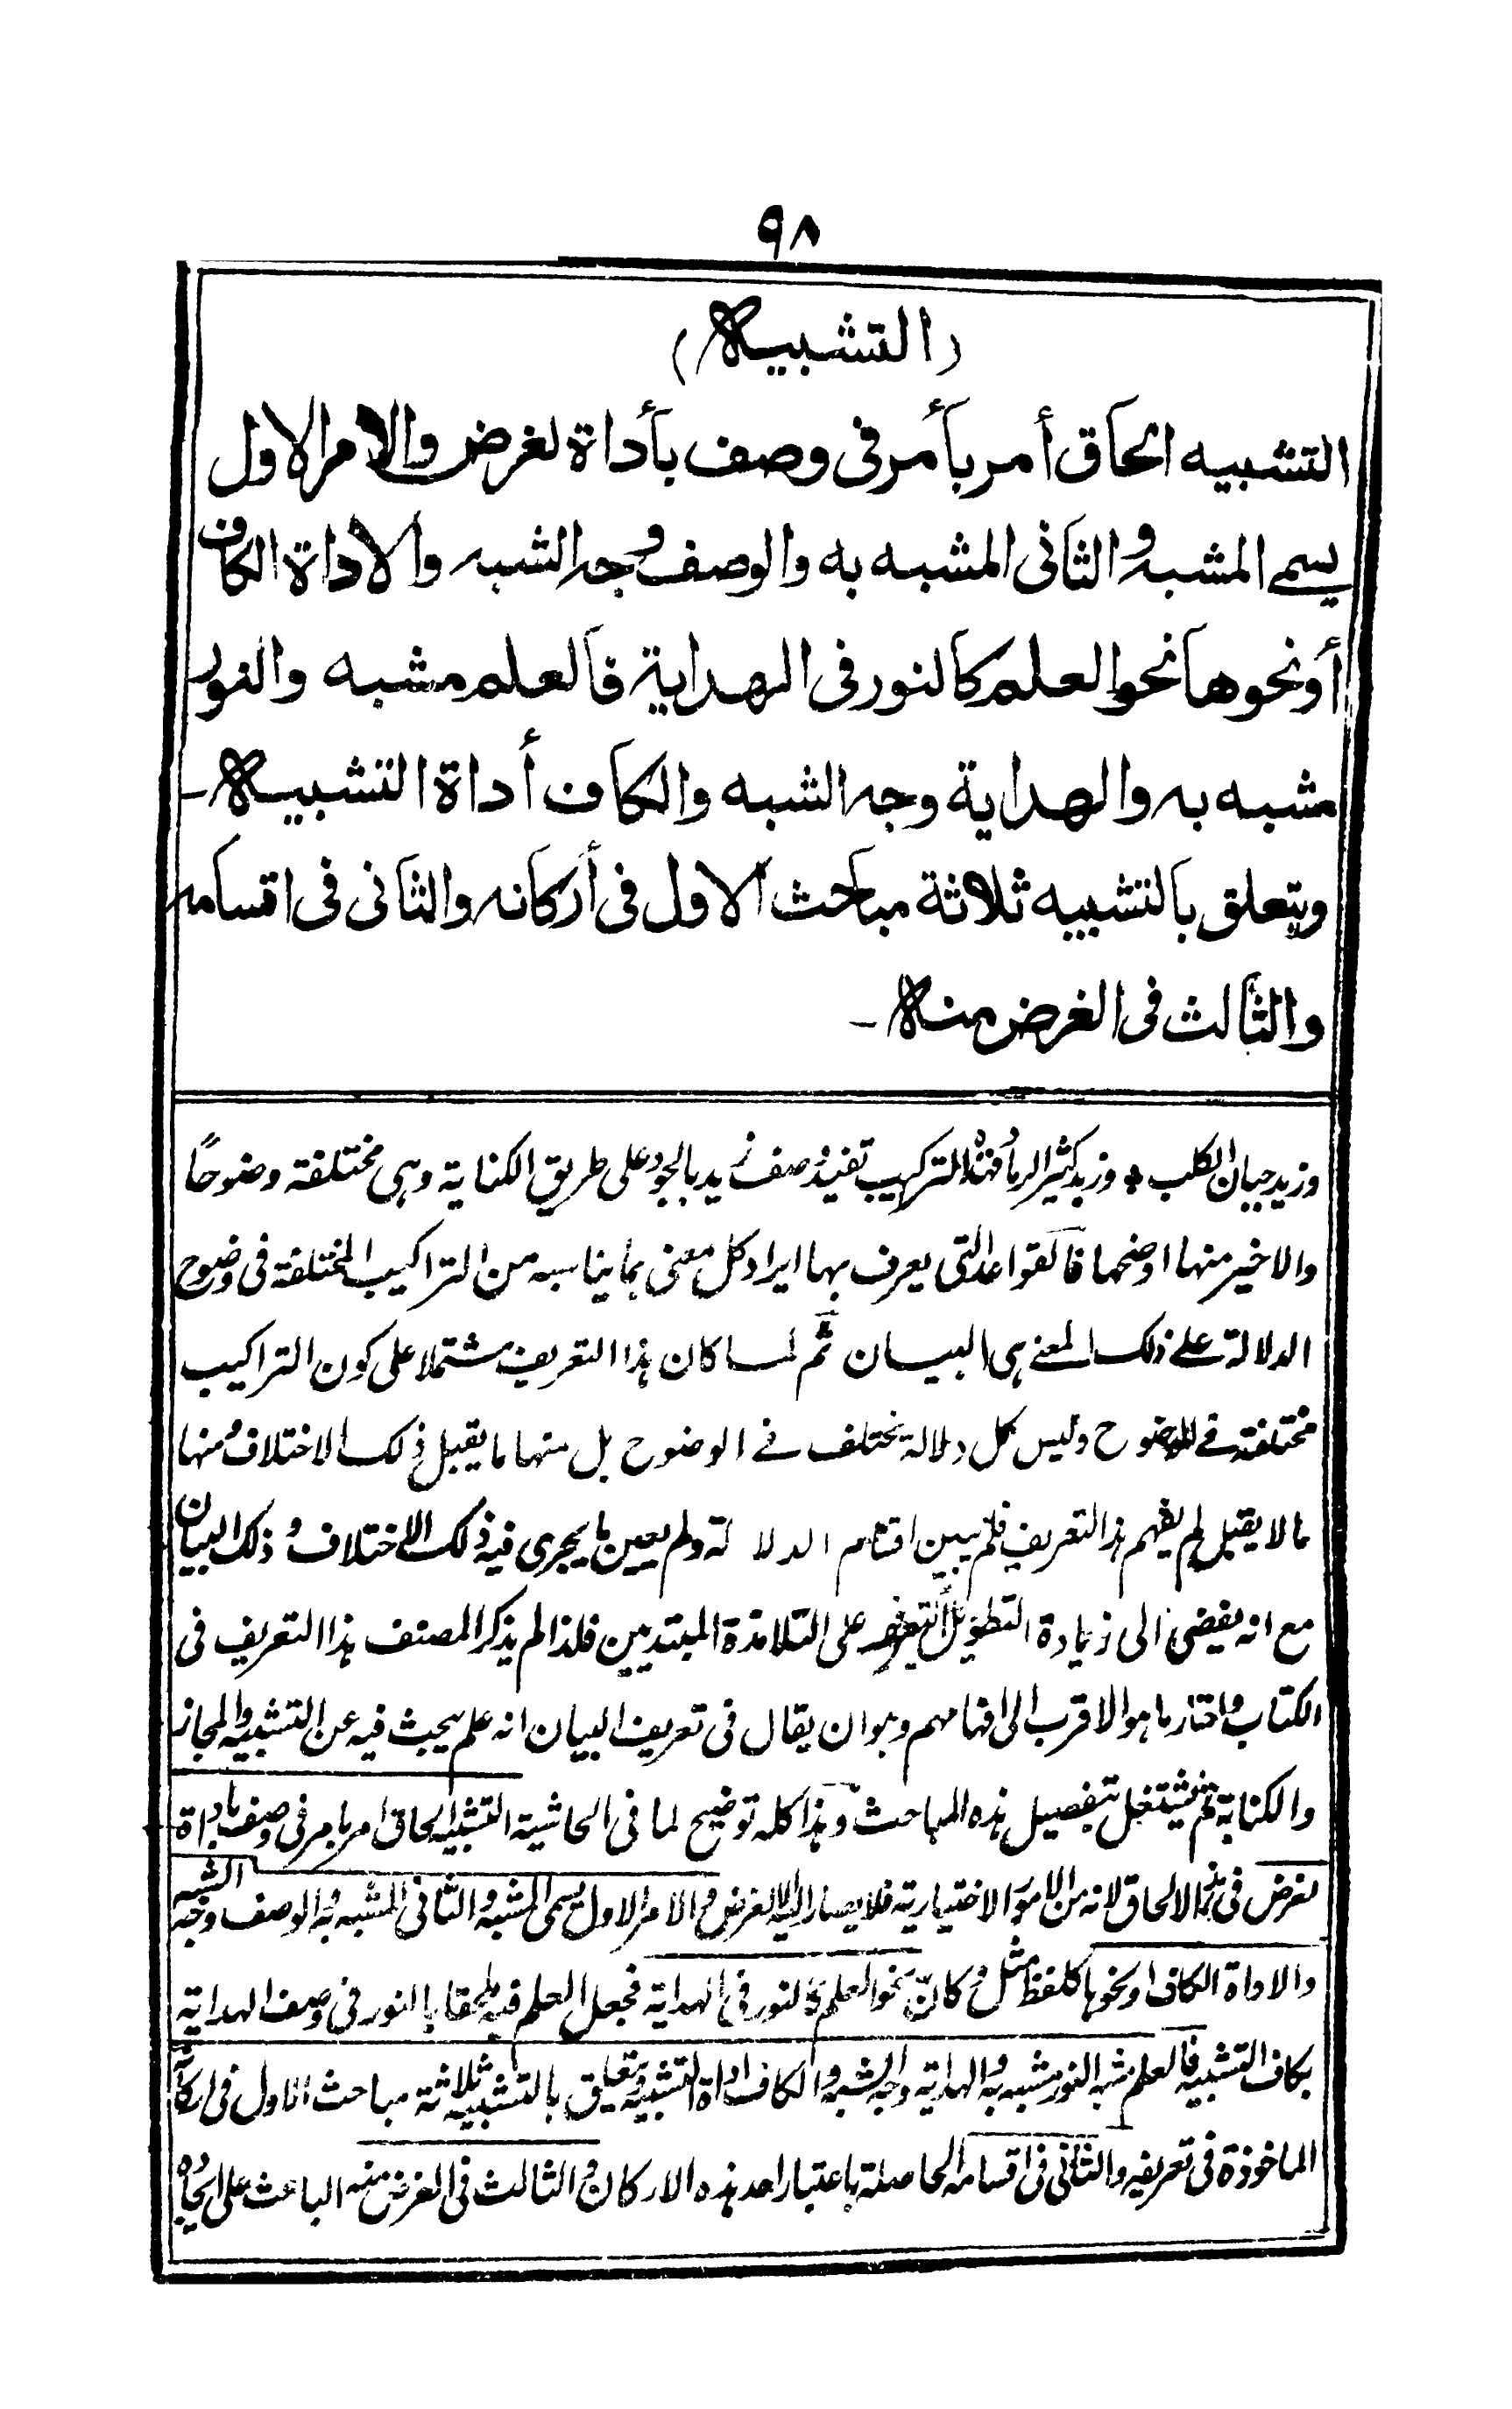 ٩٨
(التشبيه)
التشبيه الحاق أمر بأمر فى وصف بأداة لغرض والامر الاول
يسمى المشبه والثانى المشبه به والوصف وجه الشبه والاداة الكاف
أو نحوها نحو العلم كالنور فى الهداية فالعلم مشبه والنور
مشبه به والهداية وجه الشبه والكاف أداة التشبيه -
ويتعلق بالتشبيه ثلاثة مباحث الاول فى أركانه والثانى فى اقسامه
والثالث فى الغرض منه -
وزيد جبان الكلب * وزيد كثير الرماد فهذه التراكيب تفيد وصف زيد بالجود على طريق الكناية وهى مختلفة وضوحًا
والاخير منها اوضحها فالقواعد التى يعرف بها ايراد كل معنى بما يناسبه من التراكيب المختلفة فى وضوح
الدلالة على ذلك المعنى هى البيان ثم لما كان هذا التعريف مشتملا على كون التراكيب
مختلفة فى الوضوح وليس كل دلالة تختلف فى الوضوح بل منها ما يقبل ذلك الاختلاف ومنها
ما لا يقبل لم يفهم هذا التعريف فلم يبين اقسام الدلالة ولم يعين ما يجرى فيه ذلك الاختلاف وذلك البيان
مع انه يفضى الى زيادة التطويل على التلامذة المبتديين فلذا لم يذكر المصنف هذا التعريف فى
الكتاب واختار ما هو الاقرب الى افهامهم وهو ان يقال فى تعريف البيان انه علم يبحث فيه عن التشبيه والمجاز
والكناية ثم يشتغل بتفصيل هذه المباحث وهذا كله توضيح لما فى الحاشية التشبيه الحاق امر بامر فى وصف باداة
لغرض فى هذا الالحاق لانه من الامور الاختيارية فلا يصار اليه الا لغرض والامر الاول يسمى المشبه والثانى المشبه به والوصف وجه الشبه
والاداة الكاف او نحوها كلفظ مثل وكانّ نحو العلم كالنور فى الهداية فجعل العلم فيه ملحقا بالنور فى وصف الهداية
بكاف التشبيه فالعلم مشبه والنور مشبه به والهداية وجه الشبه والكاف اداة التشبيه ويتعلق بالتشبيه ثلاثة مباحث الاول فى اركانه
الماخوذة فى تعريفه والثانى فى اقسامه الحاصلة باعتبار احد هذه الاركان والثالث فى الغرض منه الباعث على ايجاده